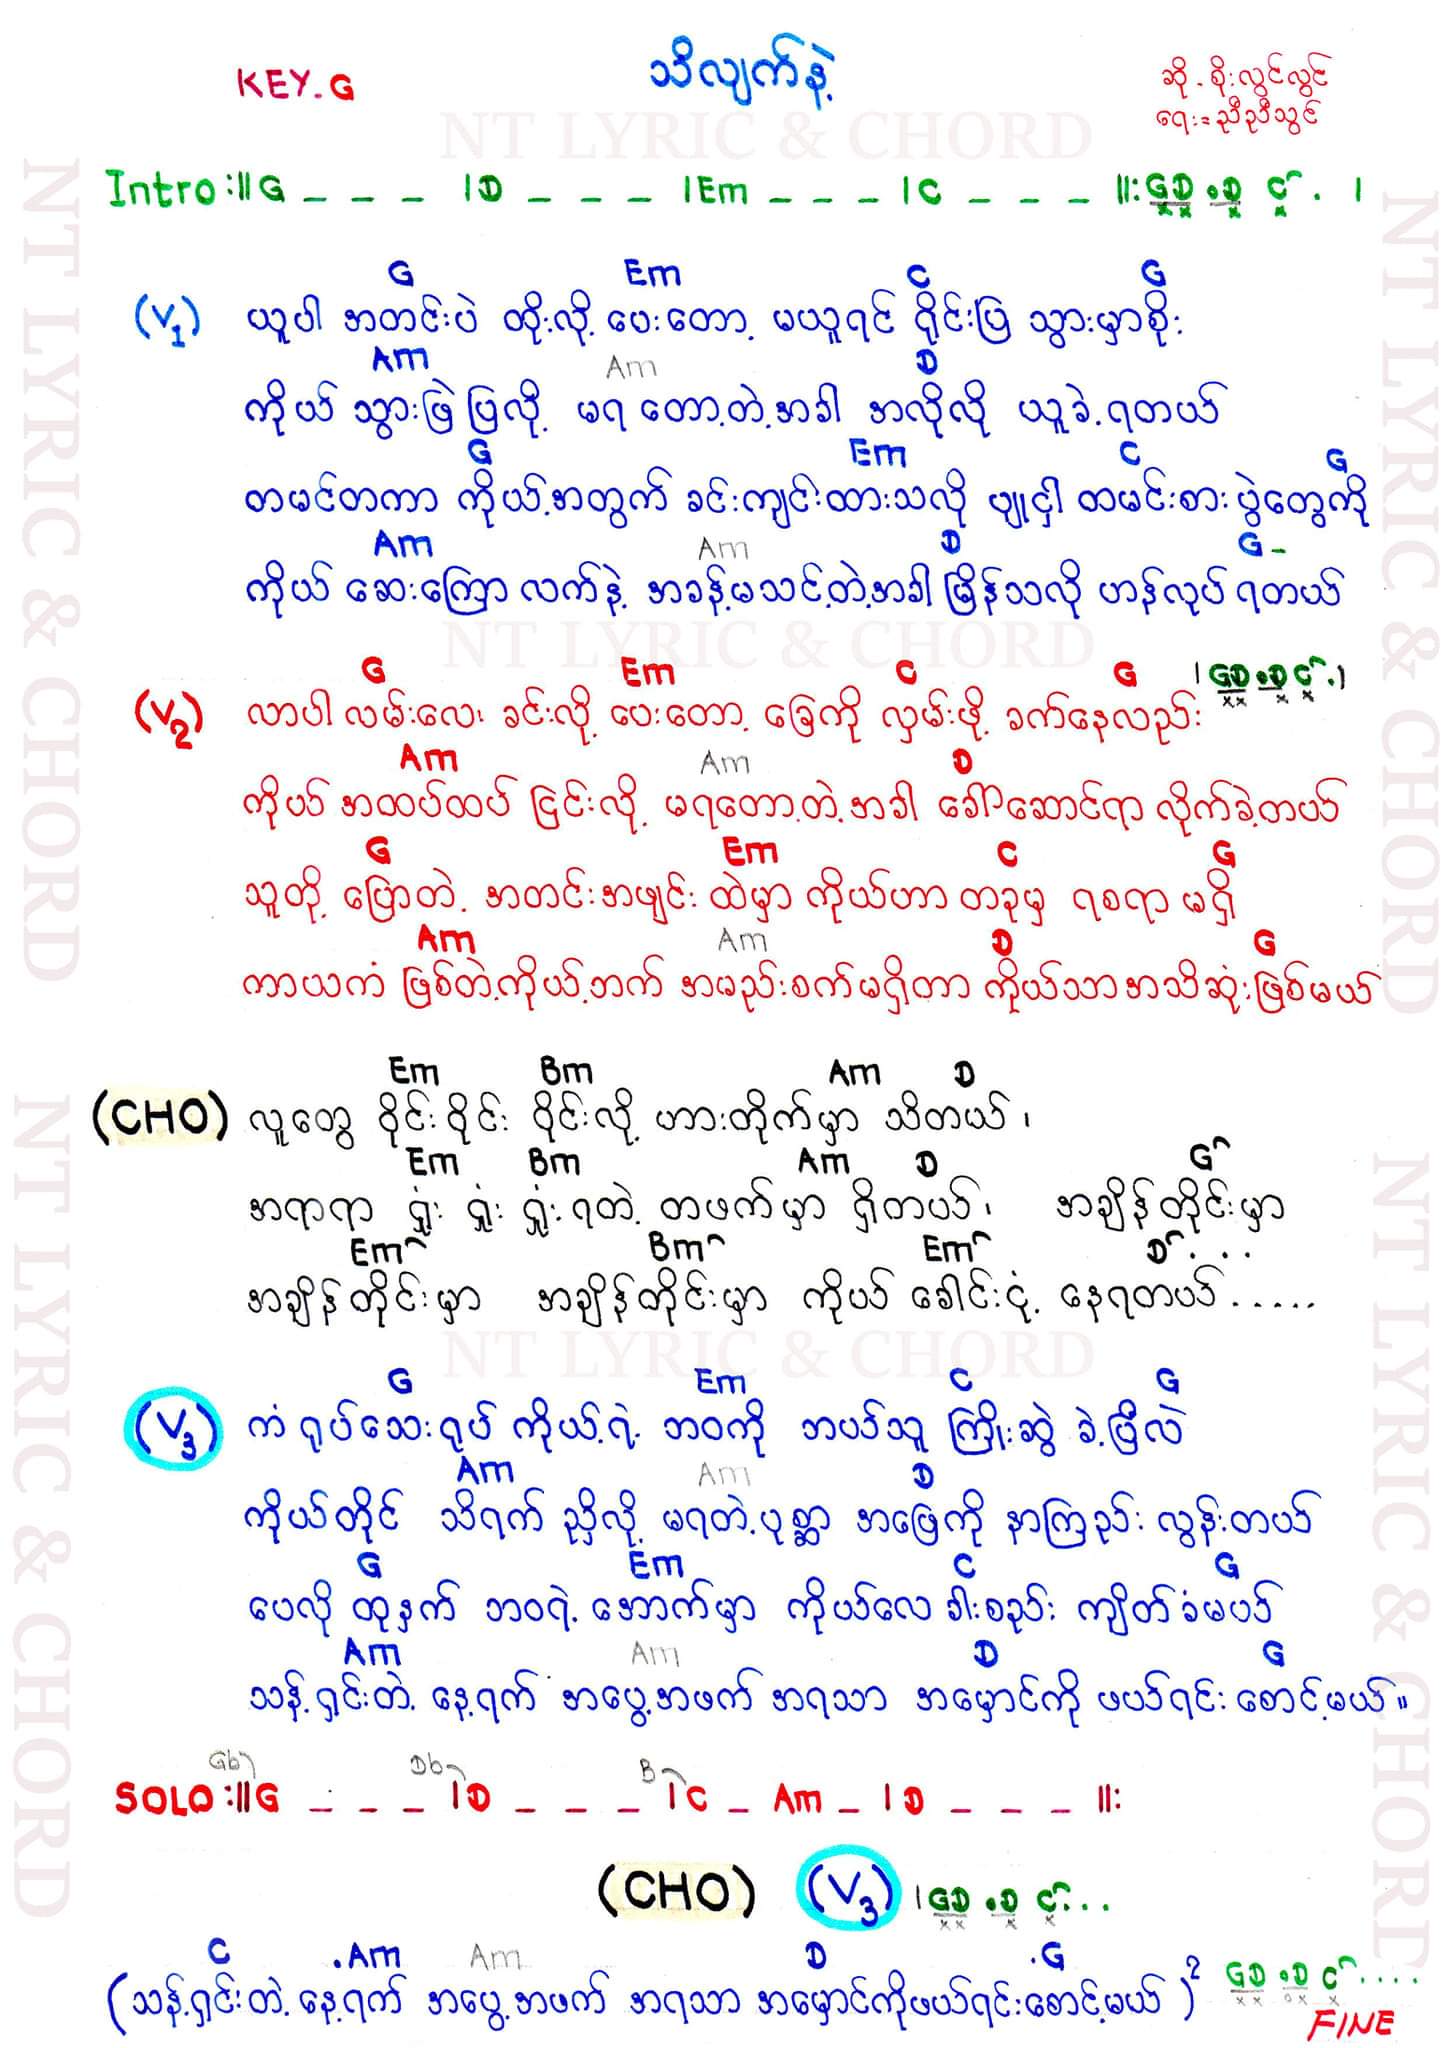 KEY-G
သိလျက်နဲ့
ဆို - စိုးလွင်လွင်
ရေး = ညီညီသွင်
NT LYRIC & CHORD
Intro :||G _ _ _ |D _ _ _ |Em _ _ _ |C _ _ _ ||: GD .D C . |
G Em C G
(V1) ယူပါ အတင်းပဲ ထိုးလို့ ပေးတော့ မယူရင် ရိုင်းပြ သွားမှာစိုး
Am Am D
ကိုယ် သွားဖြဲပြလို့ မရ တော့တဲ့အခါ အလိုလို ယူခဲ့ရတယ်
G Em C G
တမင်တကာ ကိုယ့်အတွက် ခင်းကျင်းထားသလို ပျူငှါ ထမင်းစားပွဲတွေကို
Am Am D G -
ကိုယ် ဆေးကြောလက်နဲ့ အခန့်မသင့်တဲ့အခါ မြိန်သလို ဟန်လုပ်ရတယ်
NT LYRIC & CHORD
G Em C G | GD .D C . |
(V2) လာပါ လမ်းလေး ခင်းလို့ ပေးတော့ ခြေကို လှမ်းဖို့ ခက်နေလည်း
Am Am D
ကိုယ် အထပ်ထပ် ငြင်းလို့ မရတော့တဲ့အခါ ခေါ်ဆောင်ရာ လိုက်ခဲ့တယ်
G Em C G
သူတို့ ပြောတဲ့ အတင်းအဖျင်း ထဲမှာ ကိုယ်ဟာ တခုမှ ရစရာ မရှိ
Am Am D G
ကာယကံ ဖြစ်တဲ့ကိုယ့်ဘက် အမည်းစက်မရှိတာ ကိုယ်သာအသိဆုံးဖြစ်မယ်
Em Bm Am D
(CHO) လူတွေ ဝိုင်းဝိုင်း ဝိုင်းလို့ ဟားတိုက်မှာ သိတယ်၊
Em Bm Am D G
အရာရာ ရှုံး ရှုံး ရှုံးရတဲ့ တဖက်မှာ ရှိတယ်၊ အချိန်တိုင်းမှာ
Em Bm Em D . . .
အချိန်တိုင်းမှာ အချိန်တိုင်းမှာ ကိုယ် ခေါင်းငုံ့ နေရတယ် . . . . .
NT LYRIC & CHORD
G Em C G
(V3) ကံ ရုပ်သေးရုပ် ကိုယ့်ရဲ့ ဘဝကို ဘယ်သူ ကြိုးဆွဲ ခဲ့ပြီလဲ
Am Am D
ကိုယ်တိုင် သိရက် ညှိလို့ မရတဲ့ပုစ္ဆာ အဖြေကို နာကြည်း လွန်းတယ်
G Em C G
ပေလို ထုနှက် ဘဝရဲ့ အောက်မှာ ကိုယ်လေ ခါးစည်း ကျိတ်ခံမယ်
Am Am D G
သန့်ရှင်းတဲ့ နေ့ရက် အပွေ့အဖက် အရသာ အမှောင်ကို ဖယ်ရင်း စောင့်မယ်။
Gb Db B
SOLO :||G _ _ _ |D _ _ _ |C _ Am _ |D _ _ _ ||:
(CHO) (V3) | GD .D C . . .
C .Am Am D .G
(သန့်ရှင်းတဲ့ နေ့ရက် အပွေ့အဖက် အရသာ အမှောင်ကိုဖယ်ရင်းစောင့်မယ်)2 GD .D C . . . .
FINE
NT LYRIC & CHORD
NT LYRIC & CHORD
NT LYRIC & CHORD
NT LYRIC & CHORD